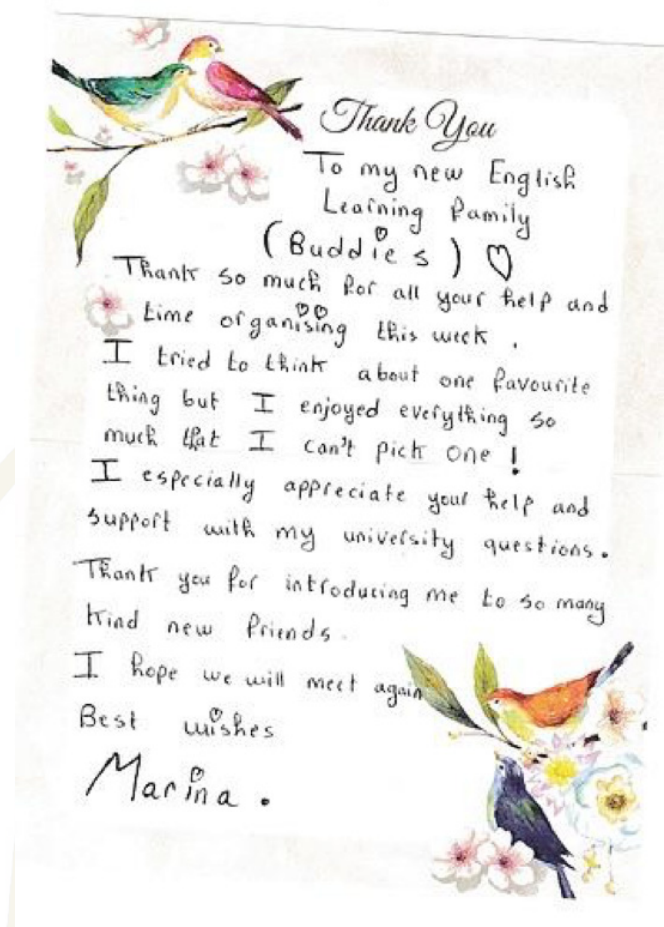 Thank You
To my new English
Learning family
(Buddies) ♡
Thank so much for all your help and
time organising this week.
I tried to think about one favourite
thing but I enjoyed everything so
much that I can't pick one!
I especially appreciate your help and
support with my university questions.
Thank you for introducing me to so many
kind new friends.
I hope we will meet again
Best wishes
Marina.